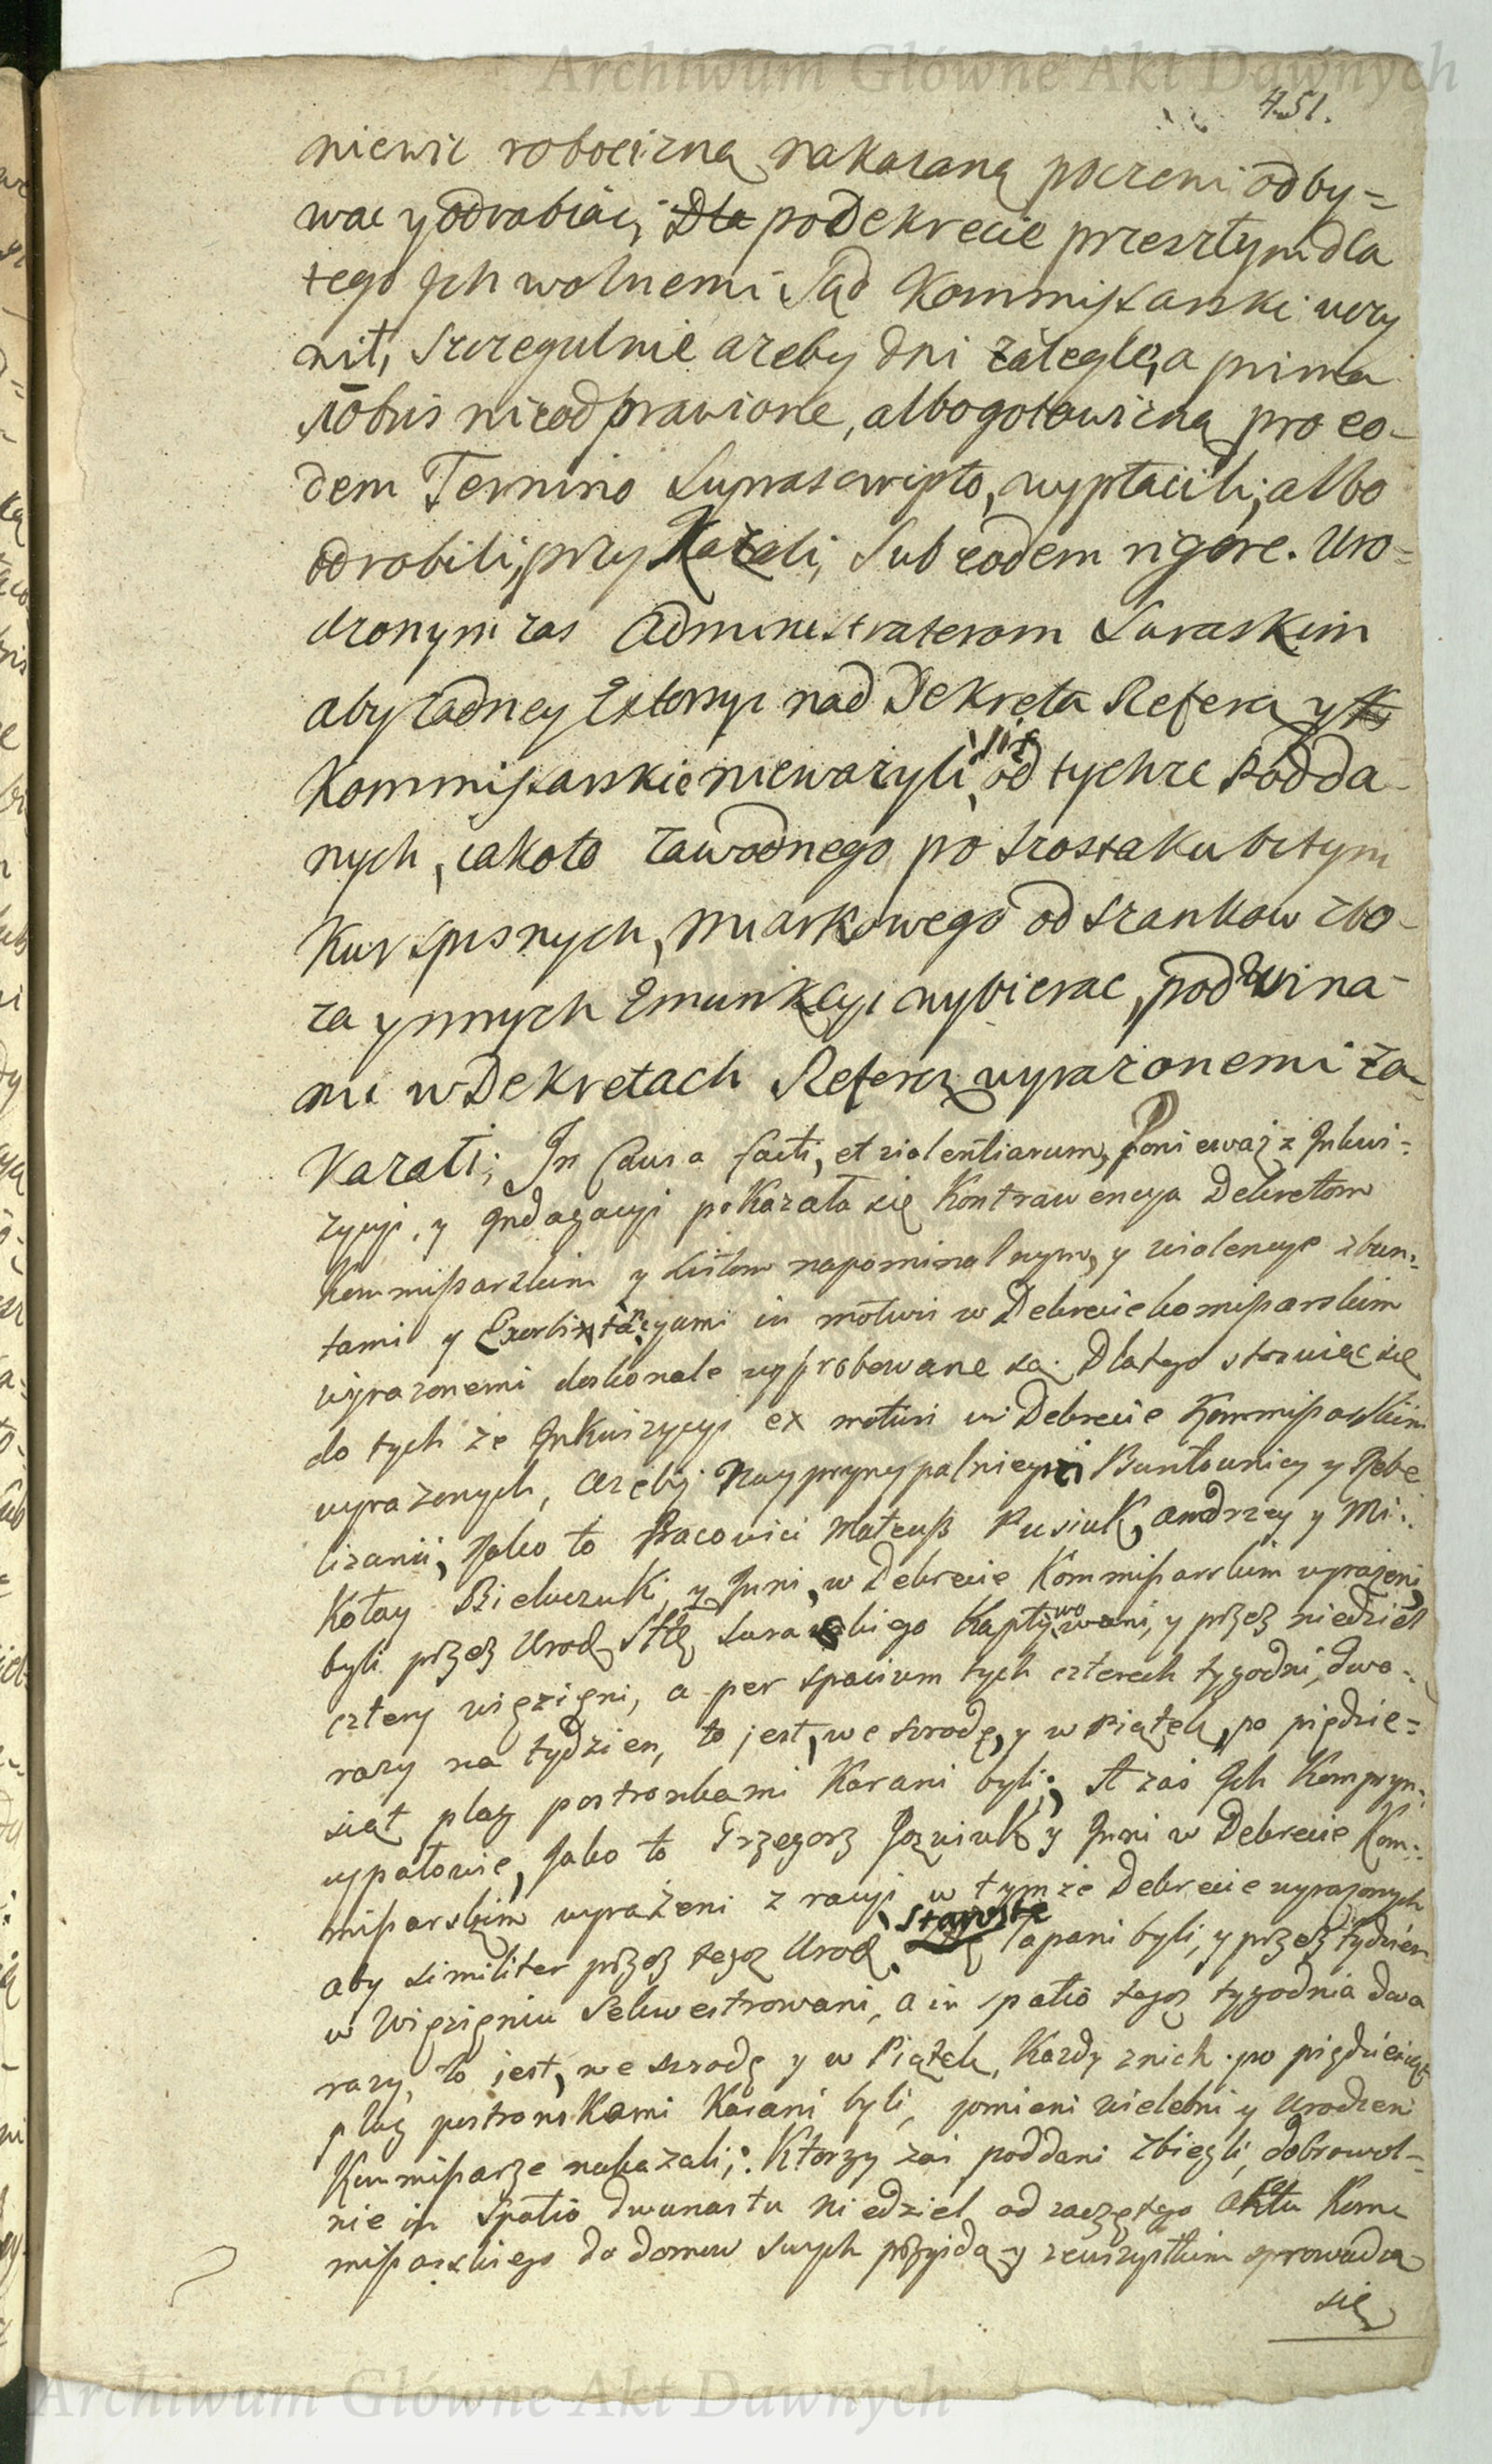 Archiwum Główne Akt Dawnych
451.
niewic robocizną nakazaną poczeni odby=
wac y odrabiac, Dla po Dekrecie przeszłym dla
tego Jch wolnemi Sąd Kommissarski uczy
nił, szczegulnie azeby dni zaległe, a prima
9bris nieodprawione, albo gotowizną pro eo-
dem Termino suprascripto, wypłacili; albo
odrobili, przykazali, sub eodem rigore. Uro=
dzonym zas Administraterom Suraskim
aby żadney Extorsyi nad Dekreta Refera y K
Kommissarskie niewazyli się od tychze Podda-
nych, iakoto zawodnego po szostaku bitym
Kur spisnych, miarkowego od szankow zbo-
za y innych Emunkcyi wybierac, pod wina-
mi w Dekretach Refera wyrażonemi za-
kazali; In Causa facti, et violentiarum, Poniewaz z Inkwi=
zycyi, y Indagacyi pokazała się Kontrawencya Dekretom
Kommissarskim y Listom napominalnym, y violencye z bun=
tami y Exorbitancyami in motivis w Dekrecie komissarskim
wyrazonemi doskonale wyprobowane są. Dlatego stosuiąc się
do tych że Inkwizycyi ex motivis w Dekrecie Kommissarskim
wyrazonych, azeby Naypryncypalnieysi Buntownicy y Rebe
lizanci, Jako to Pracowici Mateusz Rusiuk, Andrzey y Mi=
kołay Bielczuki, y Inni, w Dekrecie Kommissarskim wyrażeni,
byli przez Urod Sttę Suraskiego Kaptywowani, y przez niedziel
cztery więzięni, a per spacium tych czterech tygodni, dwa=
razy na tydzien, to jest, we srzodę, y w Piątek, po piędzie=
siąt plag postronkami Karani byli; A zas Jch Kompryn=
cypałowie, Jako to Grzegorz Jozwiuk y Inni w Dekrecie Kom=
missarskim wyrażeni z racyi w tymże Dekrecie wyrazonych
aby similiter przez tegoz Urod. Starostę łapani byli, y przez tydzień
w Więzięniu Sekwestrowani, a in spatio tegoz tygodnia dwa
razy, to jest, we szrodę y w Piątek, Kazdy znich po piędziesiąt
plag postronkami Karani byli, pomieni wielebni y Urodzeni
Kommissarze nakazali; Ktorzy zas poddani zbiegli, dobrowol=
nie in spatio dwunastu niedziel od zaczętego aktu Kom
missarskiego do domow swych przyidą y zewszystkim sprowadza
się
Archiwum Główne Akt Dawnych